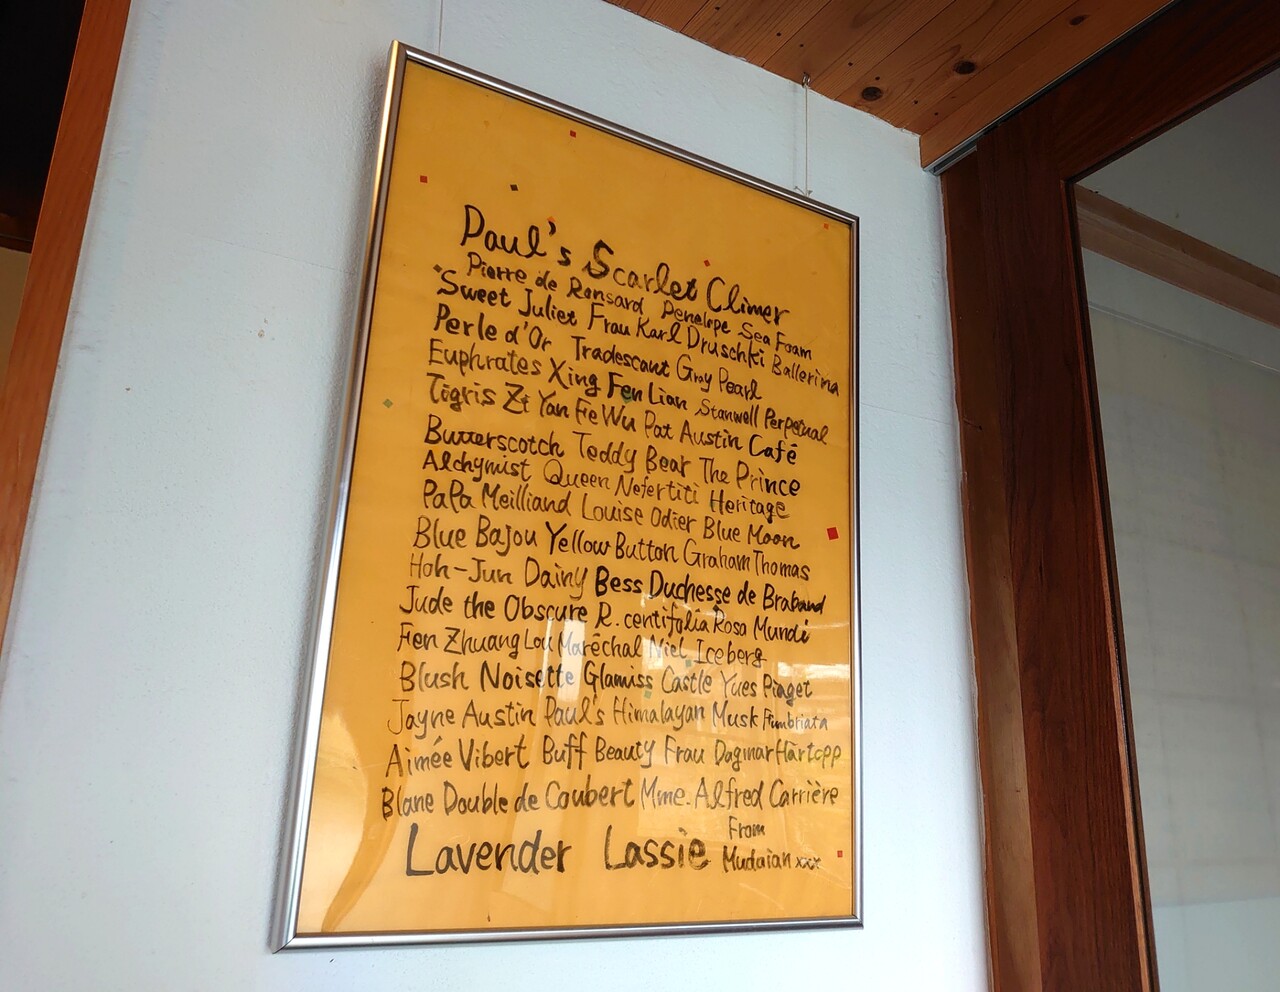 Paul's Scarlet Climer
Pierre de Ronsard Penelope Sea Foam
Sweet Juliet Frau Karl Druschki Ballerina
Perle d'Or Tradescant Gray Pearl
Euphrates Xing Fen Lian Stanwell Perpetual
Tigris Zi Yan Fe Wu Pat Austin Café
Butterscotch Teddy Bear The Prince
Alchymist Queen Nefertiti Heritage
PaPa Meilliand Louise Odier Blue Moon
Blue Bajou Yellow Button Graham Thomas
Hoh-Jun Dainy Bess Duchesse de Braband
Jude the Obscure R. centifolia Rosa Mundi
Fen Zhuang Lou Marêchal Niel Iceberg
Blush Noisette Glamiss Castle Yues Piaget
Jayne Austin Paul's Himalayan Musk Fimbriata
Aimée Vibert Buff Beauty Frau Dagmar Hartopp
Blane Double de Coubert Mme. Alfred Carrière
Lavender Lassie From
Mudaian xxx